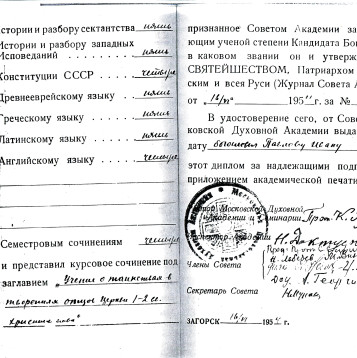 истории и разбору сектантства пять
Истории и разбору западных
Исповеданий пять
Конституции СССР четыре
Древнееврейскому языку пять
Греческому языку пять
Латинскому языку пять
Английскому языку четыре
Семестровым сочинениям четыре
и представил курсовое сочинение под
заглавием „Учение о таинствах в
творениях отцов Церкви 1-2 в.
христианства"
признанное Советом Академии за
ющим ученой степени Кандидата Бо
в каковом звании он и утверж
СВЯТЕЙШЕСТВОМ, Патриархом
ским и всея Руси (Журнал Совета А
от 16/VI 195 г. за №
В удостоверение сего, от Сове
ковской Духовной Академии выда
дату богословия Павлову Ивану
этот диплом за надлежащими подп
приложением академической печати
Ректор Московской Духовной
Академии и Семинарии Прот.
Инспектор Академии
Члены Совета
Секретарь Совета
ЗАГОРСК 16/VI 195 г.